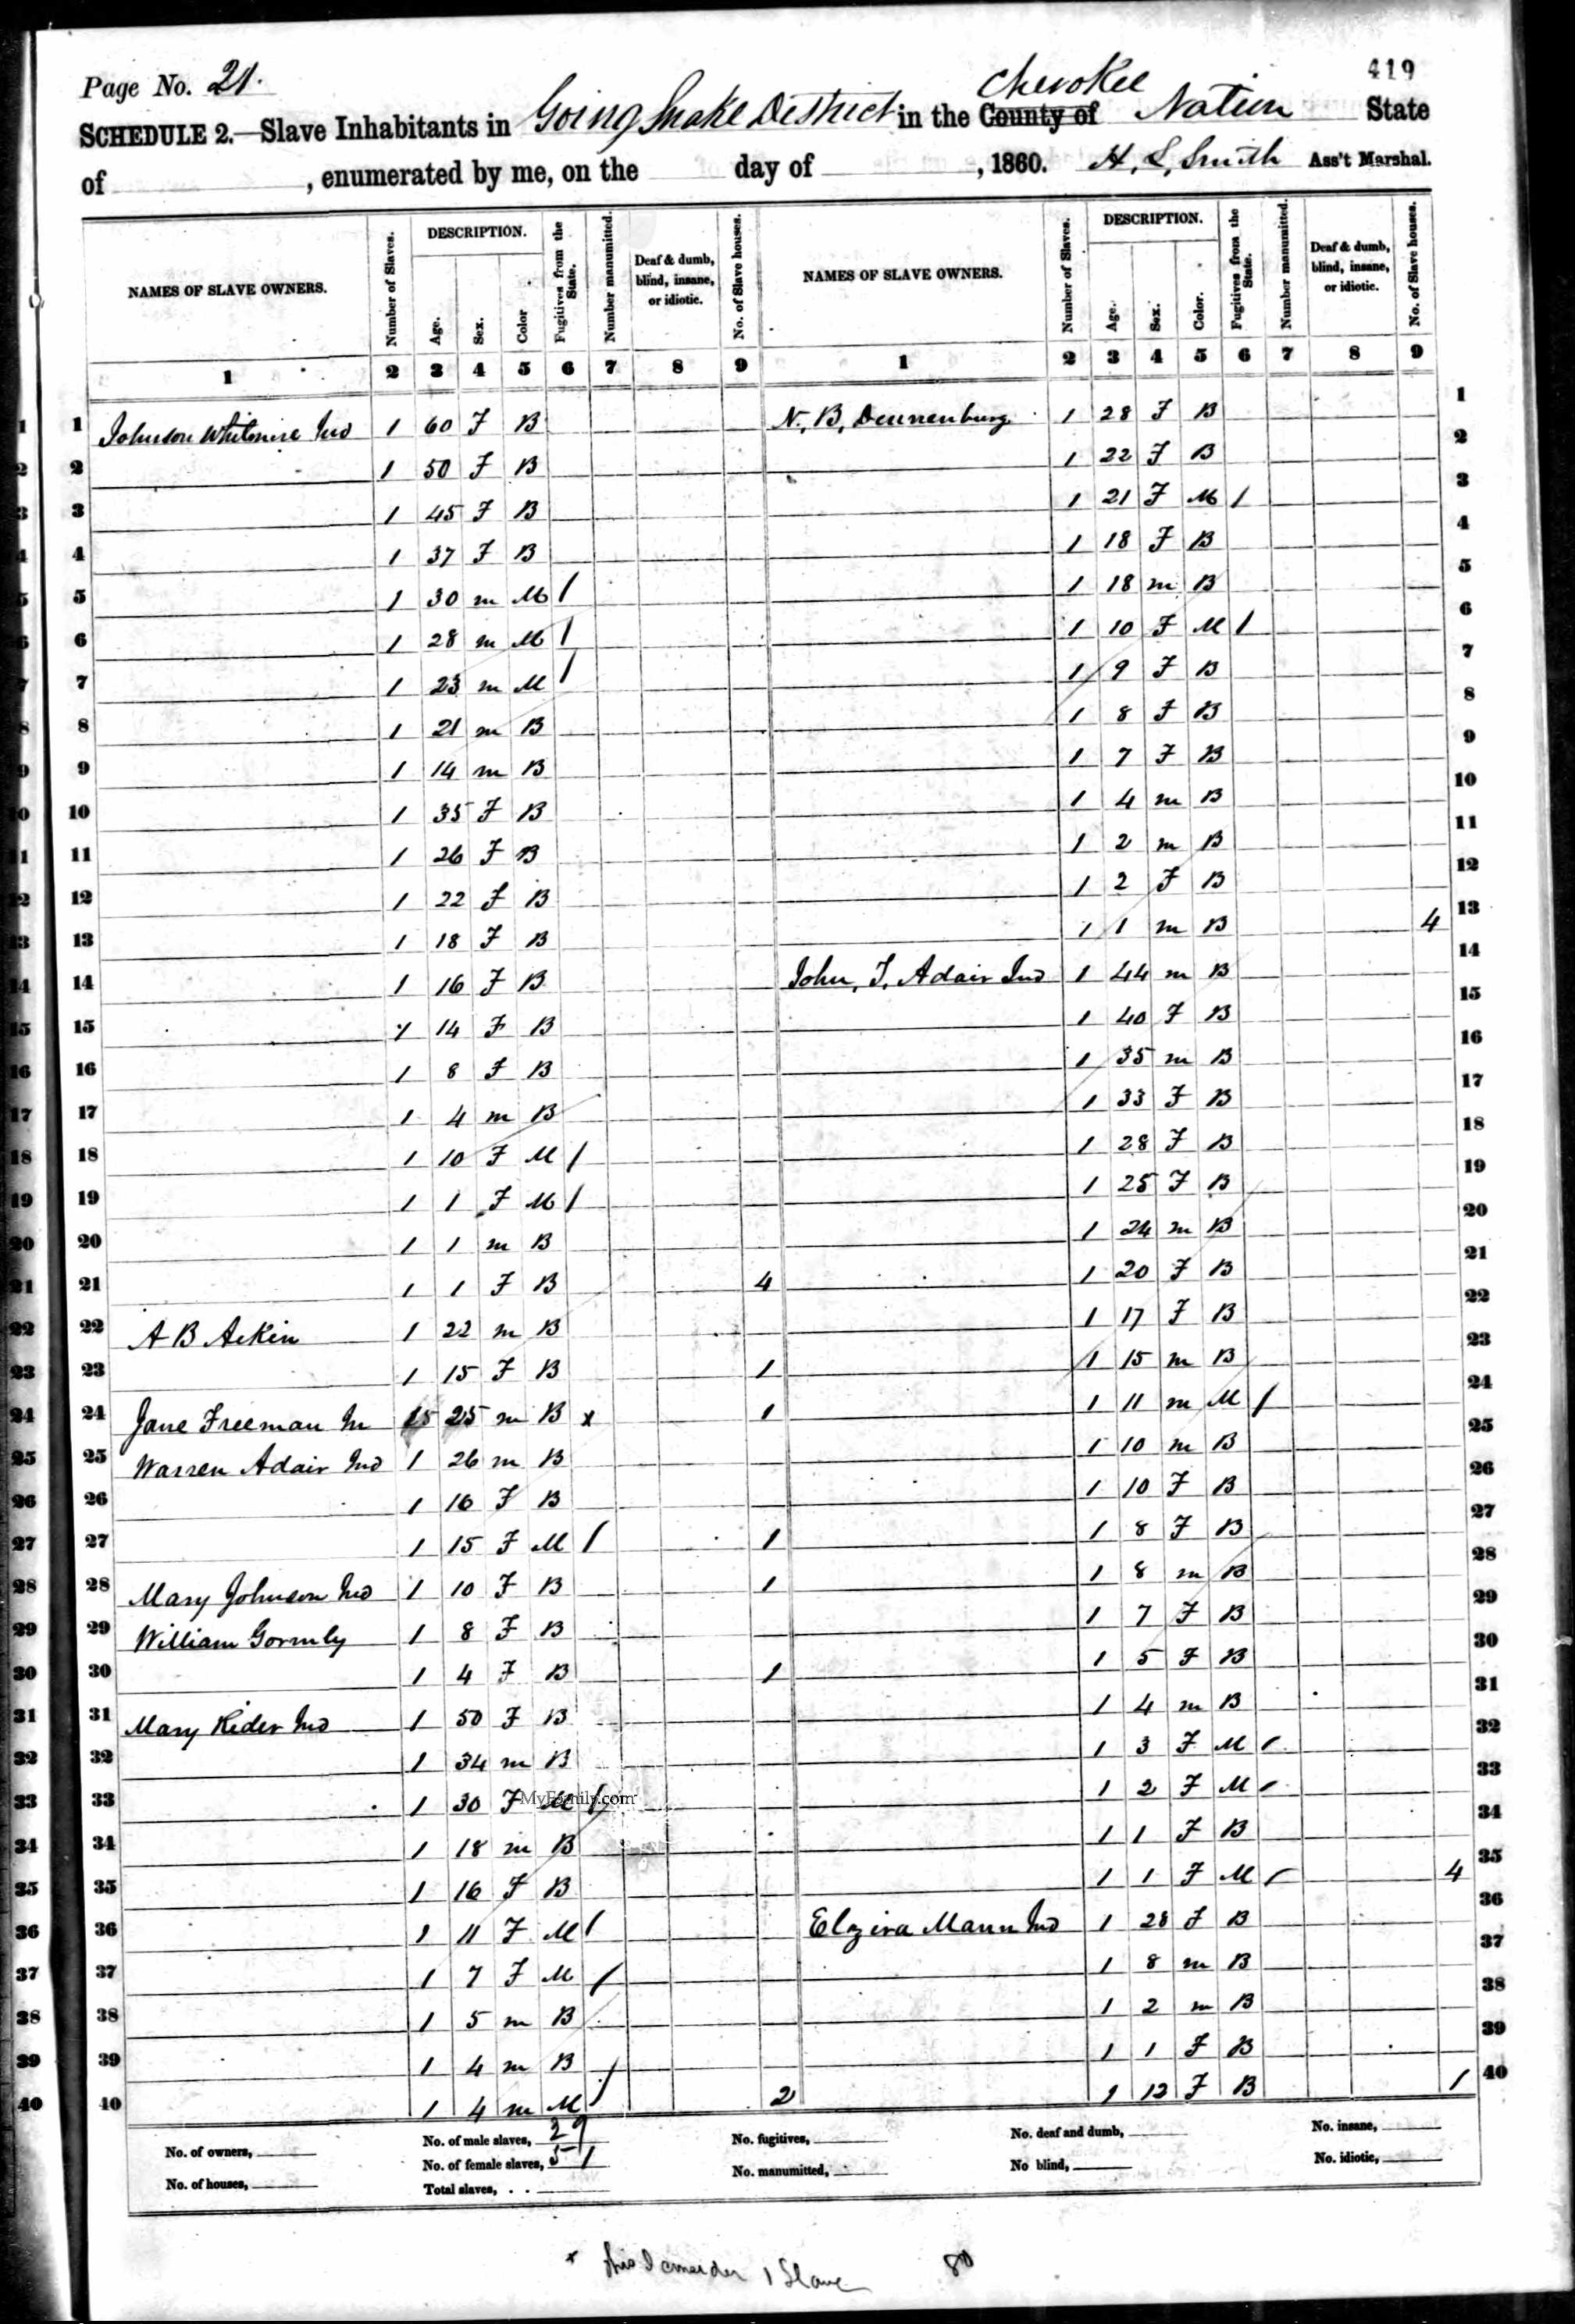 419
Page No. 21.
SCHEDULE 2.—Slave Inhabitants in Going Snake District in the County of Cherokee Nation State
of , enumerated by me, on the day of , 1860. H. S. Smith Ass't Marshal.
NAMES OF SLAVE OWNERS. Number of Slaves. DESCRIPTION. Age. Sex. Color Fugitives from the State. Number manumitted. Deaf & dumb, blind, insane, or idiotic. No. of Slave houses. NAMES OF SLAVE OWNERS. Number of Slaves. DESCRIPTION. Age. Sex. Color. Fugitives from the State. Number manumitted. Deaf & dumb, blind, insane, or idiotic. No. of Slave houses.
1 2 3 4 5 6 7 8 9 1 2 3 4 5 6 7 8 9
1 1 Johnson Whitmire Ind 1 60 F B N. B. Dannenburg 1 28 F B 1
2 2 1 50 F B 1 22 F B 2
3 3 1 45 F B 1 21 F M / 3
4 4 1 37 F B 1 18 F B 4
5 5 1 30 m M / 1 18 m B 5
6 6 1 28 m M / 1 10 F M / 6
7 7 1 23 m M / 1 9 F B 7
8 8 1 21 m B 1 8 F B 8
9 9 1 14 m B 1 7 F B 9
10 10 1 35 F B 1 4 m B 10
11 11 1 26 F B 1 2 m B 11
12 12 1 22 F B 1 2 F B 12
13 13 1 18 F B 1 1 m B 4 13
14 14 1 16 F B John. T. Adair Ind 1 44 m B 14
15 15 1 14 F B 1 40 F B 15
16 16 1 8 F B 1 35 m B 16
17 17 1 4 m B 1 33 F B 17
18 18 1 10 F M / 1 28 F B 18
19 19 1 1 F M / 1 25 F B 19
20 20 1 1 m B 1 24 m B 20
21 21 1 1 F B 4 1 20 F B 21
22 22 A B Aekin 1 22 m B 1 17 F B 22
23 23 1 15 F B 1 1 15 m B 23
24 24 Jane Freeman In 25 m B x 1 1 11 m M / 24
25 25 Warren Adair Ind 1 26 m B 1 10 m B 25
26 26 1 16 F B 1 10 F B 26
27 27 1 15 F M / 1 1 8 F B 27
28 28 Mary Johnson Ind 1 10 F B 1 1 8 m B 28
29 29 William Gormly 1 8 F B 1 7 F B 29
30 30 1 4 F B 1 1 5 F B 30
31 31 Mary Rider Ind 1 50 F B 1 4 m B 31
32 32 1 34 m B 1 3 F M / 32
33 33 1 30 F M / 1 2 F M / 33
MyFamily.com
34 34 1 18 m B 1 1 F B 34
35 35 1 16 F B 1 1 F M / 4 35
36 36 1 11 F M / Elzira Mann Ind 1 28 F B 36
37 37 1 7 F M / 1 8 m B 37
38 38 1 5 m B 1 2 m B 38
39 39 1 4 m B 1 1 F B 39
40 40 1 4 m M / 2 1 12 F B 1 40
No. of owners, No. of male slaves, 29 No. fugitives, No. deaf and dumb, No. insane,
No. of houses, No. of female slaves, 51 No. manumitted, No blind, No. idiotic,
Total slaves,
x this I consider 1 Slave 80